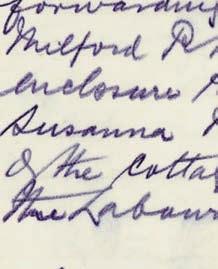 forwarding
Milford R
enclosure
Susanna
of the Cotta
the Labour